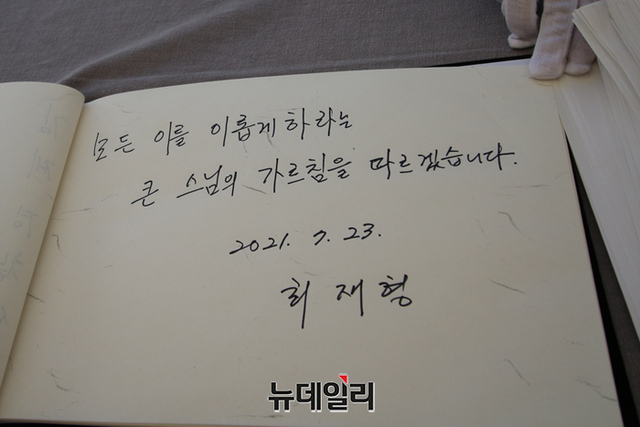 모든 이를 이롭게하라는
큰 스님의 가르침을 따르겠습니다.
2021. 7. 23.
최 재 형
뉴데일리